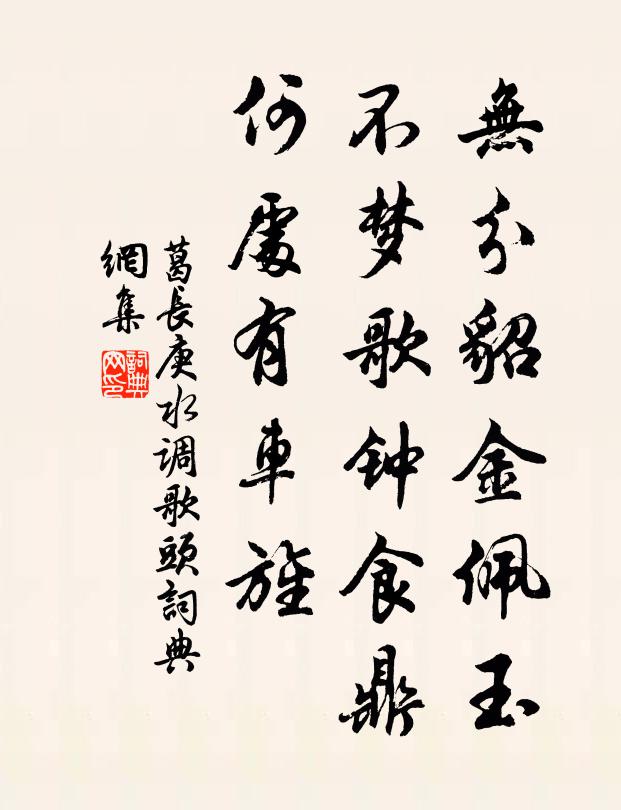 無分貂金佩玉
不梦歌钟食鼎
何處有車旌
葛長庚水调歌頭詞典
網集
詞典網印